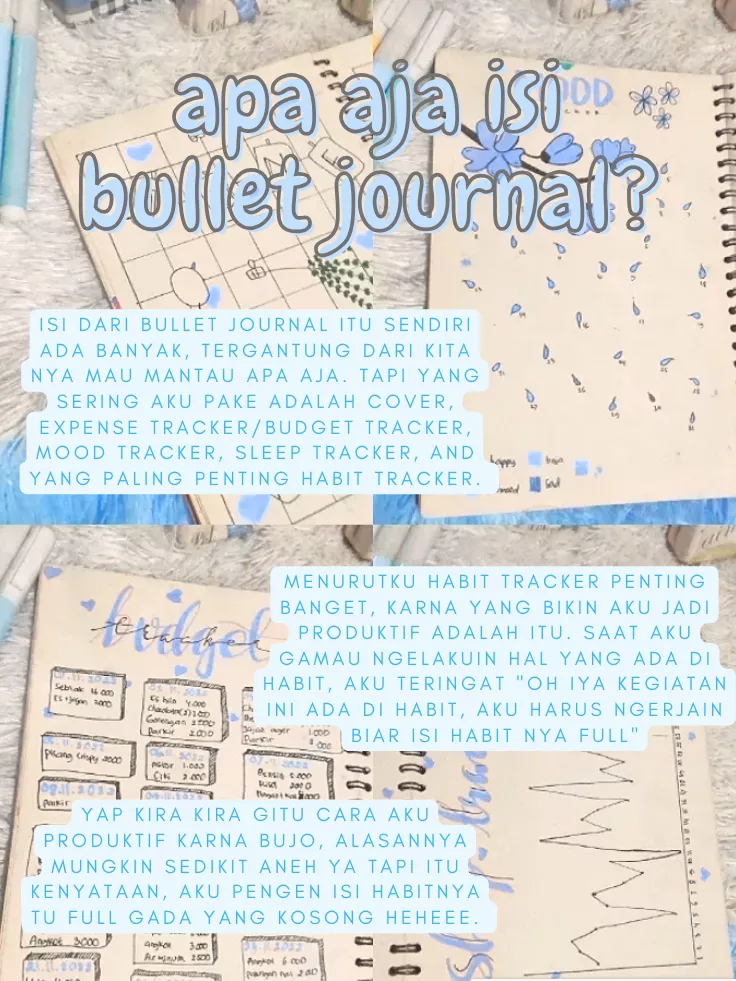 apa aja isi
bullet journal?
ISI DARI BULLET JOURNAL ITU SENDIRI
ADA BANYAK, TERGANTUNG DARI KITA
NYA MAU MANTAU APA AJA. TAPI YANG
SERING AKU PAKE ADALAH COVER,
EXPENSE TRACKER/BUDGET TRACKER,
MOOD TRACKER, SLEEP TRACKER, AND
YANG PALING PENTING HABIT TRACKER.
happy
Sad
MENURUTKU HABIT TRACKER PENTING
BANGET, KARNA YANG BIKIN AKU JADI
PRODUKTIF ADALAH ITU. SAAT AKU
GAMAU NGELAKUIN HAL YANG ADA DI
HABIT, AKU TERINGAT "OH IYA KEGIATAN
INI ADA DI HABIT, AKU HARUS NGERJAIN
BIAR ISI HABIT NYA FULL"
budget
tracker
Parkir 2.000
Pisang crispy 2000
Parkir 1.000
Ciki 2.000
08.11.2022
Parkir
YAP KIRA KIRA GITU CARA AKU
PRODUKTIF KARNA BUJO, ALASANNYA
MUNGKIN SEDIKIT ANEH YA TAPI ITU
KENYATAAN, AKU PENGEN ISI HABITNYA
TU FULL GADA YANG KOSONG HEHEEE.
Angkot 3.000
Angkot 3.000
Air minum 2500
Angkot 6.000